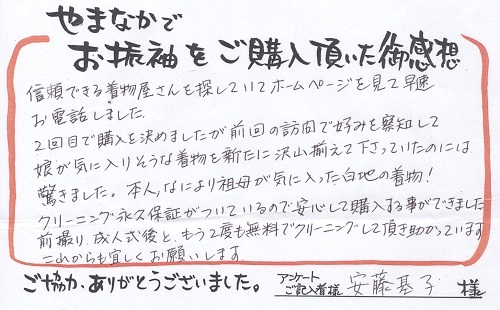 やまなかで
お振袖をご購入頂いた御感想
信頼できる着物屋さんを探していてホームページを見て早速
お電話しました。
2回目で購入を決めましたが前回の訪問で好みを察知して
娘が気に入りそうな着物を新たに沢山揃えて下さっていたのには
驚きました。本人、なにより祖母が気に入った白地の着物！
クリーニング永久保証がついているので安心して購入する事ができました
前撮り、成人式後と、もう2度も無料でクリーニングして頂き助かっています
これからも宜しくお願いします。
ご協力、ありがとうございました。
アンケートご記入者様 安藤基子 様